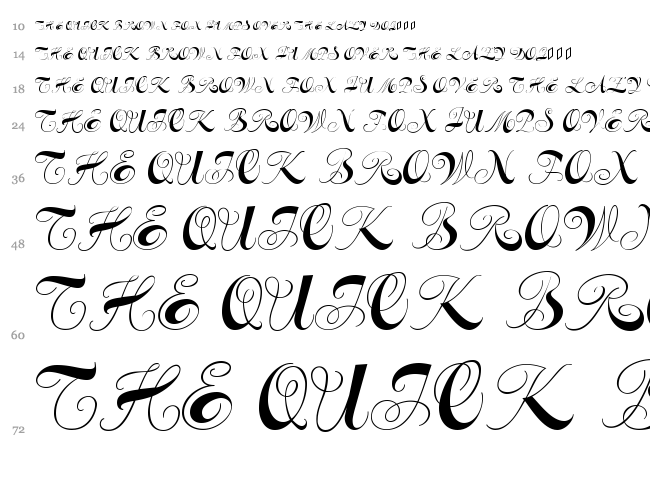 10 THE QUICK BROWN FOX JUMPS OVER THE LAZY DOG
14 THE QUICK BROWN FOX JUMPS OVER THE LAZY DOG
18 THE QUICK BROWN FOX JUMPS OVER THE LAZY
24 THE QUICK BROWN FOX JUMPS OVER
36 THE QUICK BROWN FOX
48 THE QUICK BROWN
60 THE QUICK BRO
72 THE QUICK B